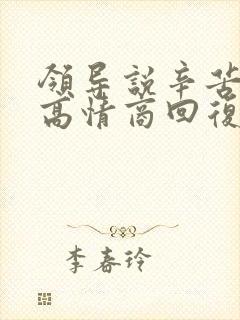 領导説辛苦
高情商回復
李春玲